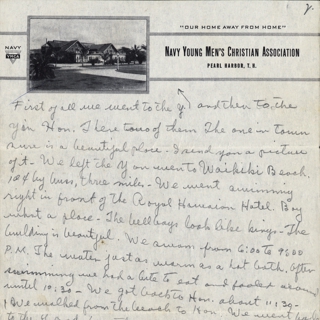 7.
"OUR HOME AWAY FROM HOME"
NAVY
YMCA
NAVY YOUNG MEN'S CHRISTIAN ASSOCIATION
PEARL HARBOR, T. H.
First of all we went to the Y and then to the
Y in Hon. There two of them. The one in town
sure is a beautiful place. I send you a picture
of it - We left the Y on went to Waikiki Beach.
10¢ by bus, three mile. We went swimming
right in front of the Royal Hawaiian Hotel Boy
what a place - The bell boys look like kings - The
building is beautiful. We swam from 6:00 to 9:00
P.M. The water just as warm as a hot bath. After
swimming we had a bite to eat and fooled around
until 10:30 - We got back to Hon. about 11:30 -
We walked from the beach to Hon. We went back